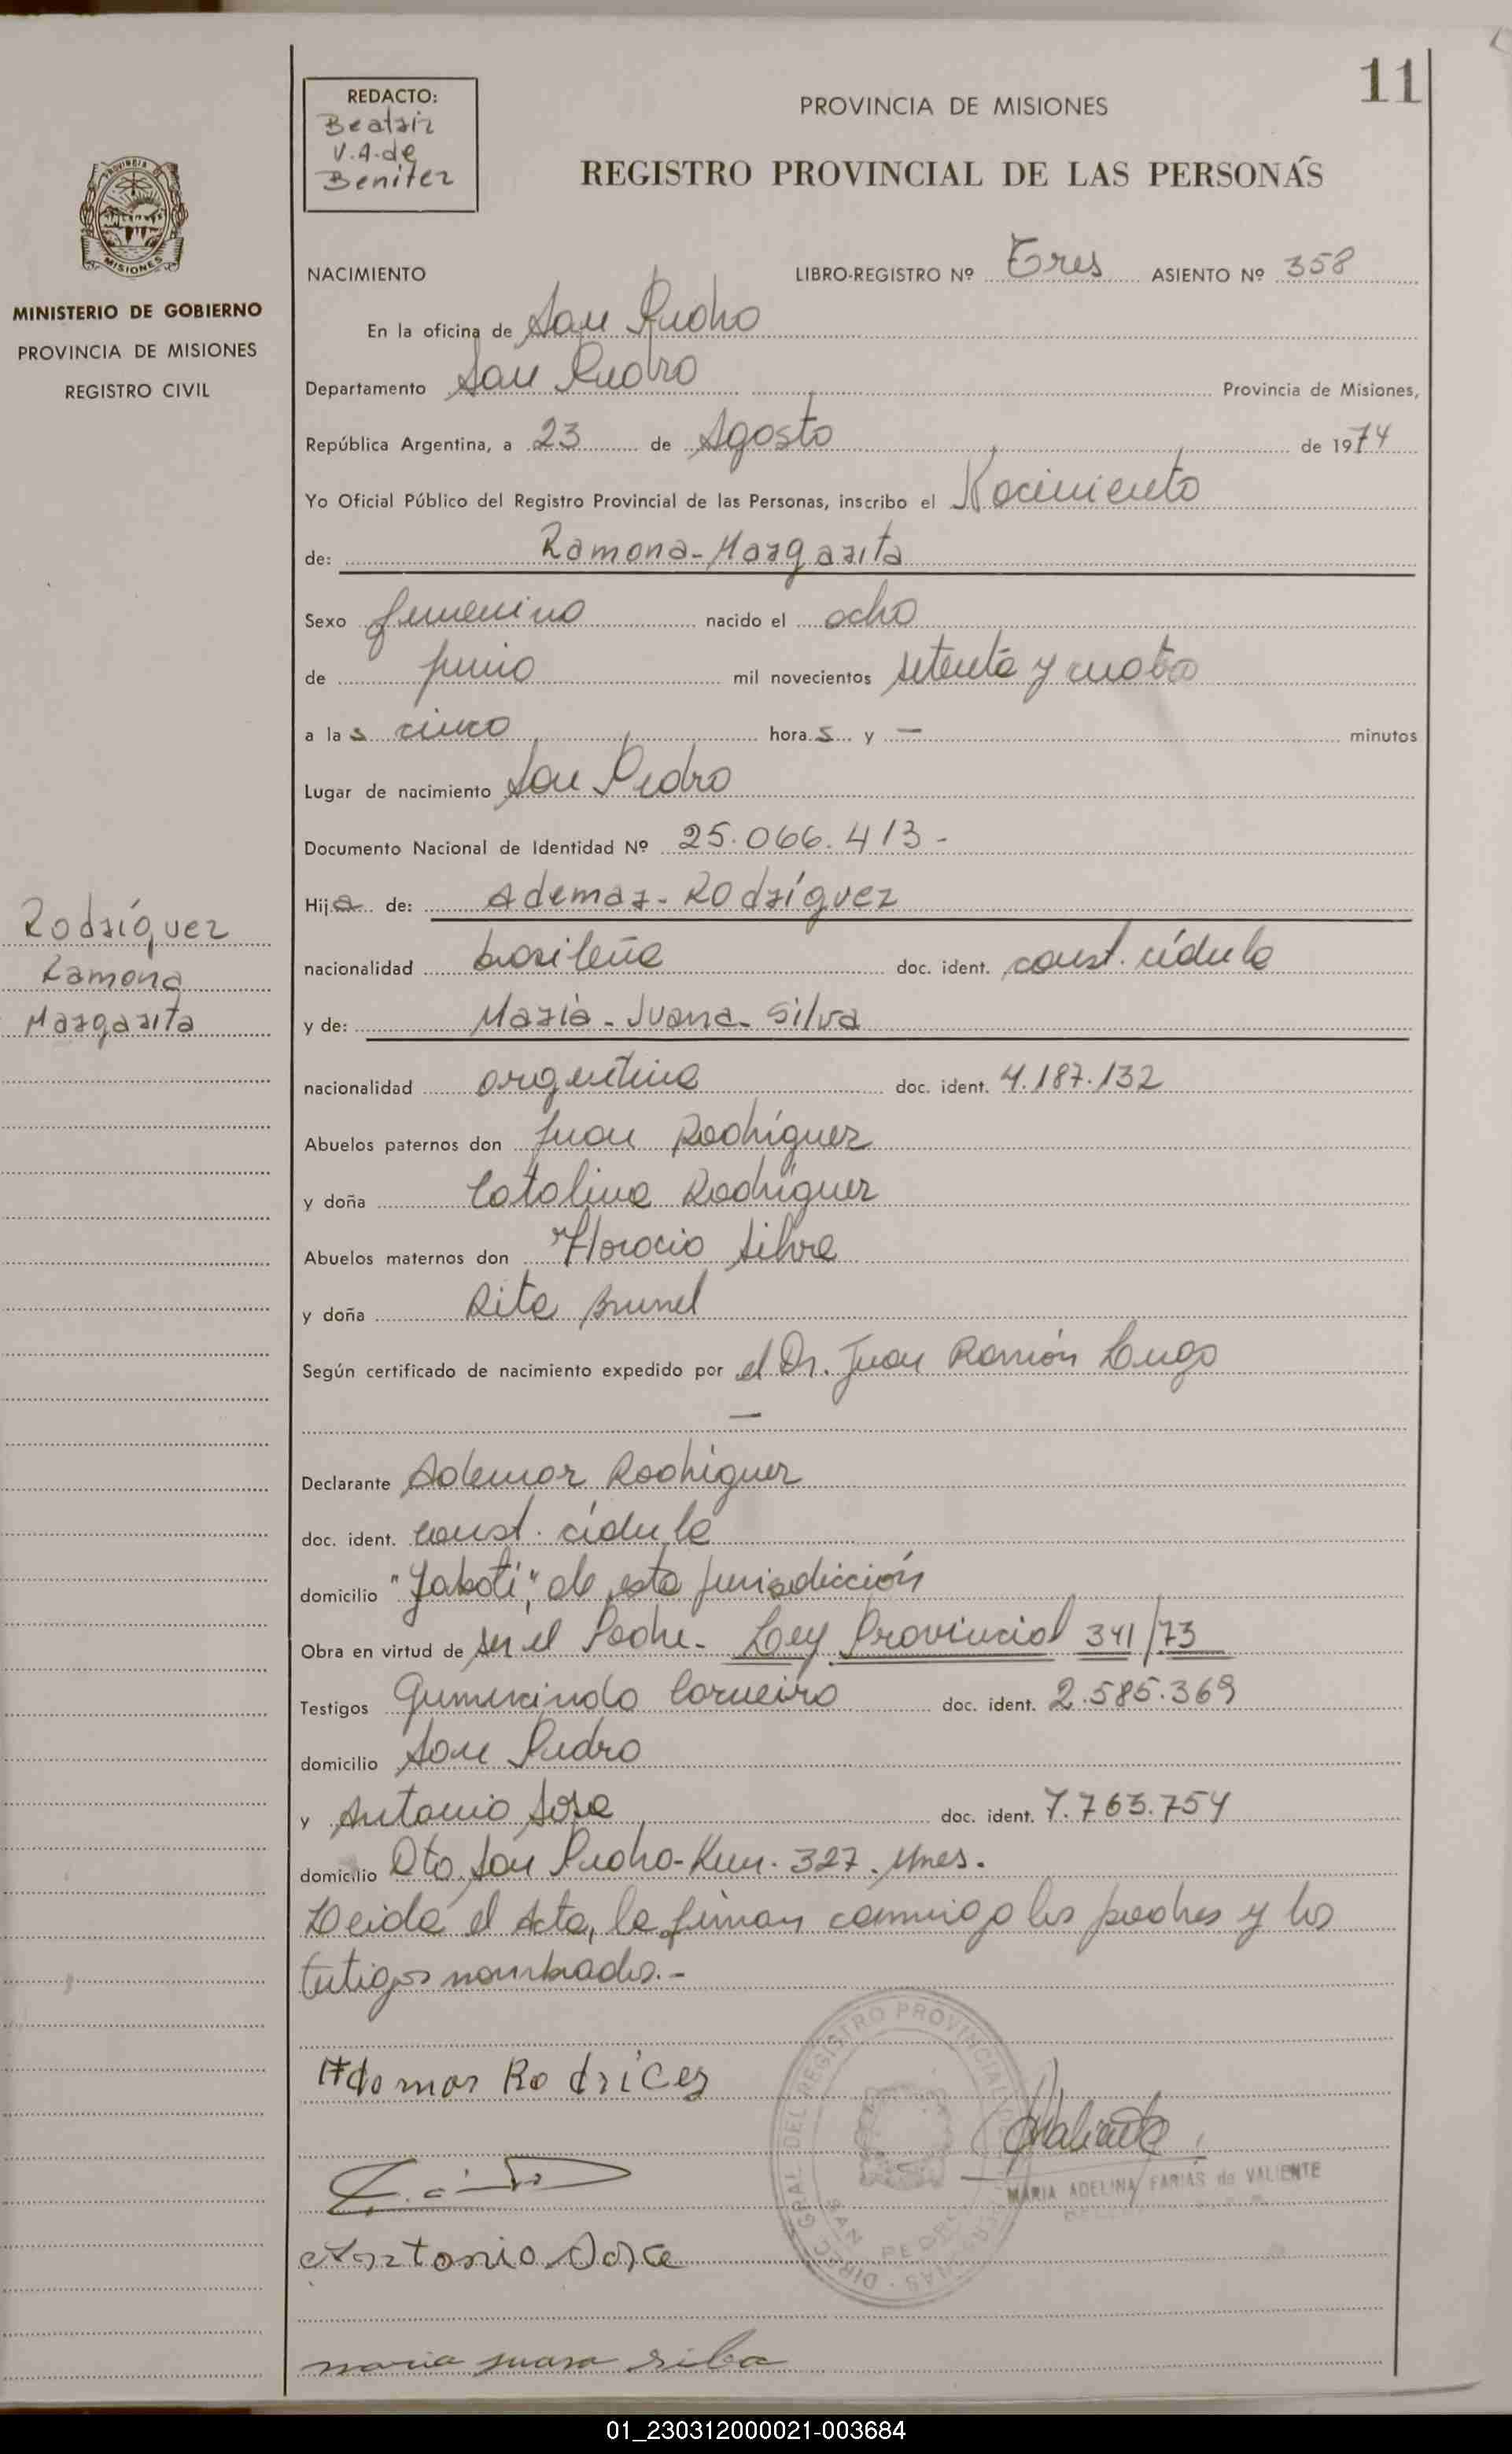 11
REDACTO:
Beatriz
V.A. de
Benitez
PROVINCIA DE MISIONES
REGISTRO PROVINCIAL DE LAS PERSONAS
PROVINCIA
MISIONES
MINISTERIO DE GOBIERNO
PROVINCIA DE MISIONES
REGISTRO CIVIL
NACIMIENTO LIBRO-REGISTRO Nº Tres ASIENTO Nº 358
En la oficina de San Pedro
Departamento San Pedro Provincia de Misiones,
República Argentina, a 23 de Agosto de 1974
Yo Oficial Público del Registro Provincial de las Personas, inscribo el Nacimiento
de: Ramona-Margarita
Sexo femenino nacido el ocho
de junio mil novecientos setenta y cuatro
a las cinco horas y — minutos
Lugar de nacimiento San Pedro
Documento Nacional de Identidad Nº 25.066.413-
Hija de: Ademar-Rodríguez
nacionalidad brasileña doc. ident. const. cédula
y de: María-Juana-Silva
nacionalidad argentina doc. ident. 4.187.132
Abuelos paternos don Juan Rodríguez
y doña Catalina Rodríguez
Abuelos maternos don Horacio Silva
y doña Rita Brunel
Según certificado de nacimiento expedido por el Dr. Juan Ramón Lugo
—
Declarante Ademar Rodríguez
doc. ident. const. cédula
domicilio "Yabotí", de esta jurisdicción
Obra en virtud de ser el Padre.- Ley Provincial 341/73
Testigos Gumercindo Carneiro doc. ident. 2.585.369
domicilio San Pedro
y Antonio Sosa doc. ident. 7.763.754
domicilio Dto. San Pedro-Km. 327. Mnes.
Leida el Acta, la firman conmigo los padres y los
testigos nombrados.-
Rodríguez
Ramona
Margarita
Ademar Rodrícez
MARIA ADELINA FARIAS de VALIENTE
DIREC. GRAL. DEL REGISTRO PROVINCIAL DE LAS PERSONAS
SAN PEDRO
Antonio Sosa
maria juana silba
01_230312000021-003684